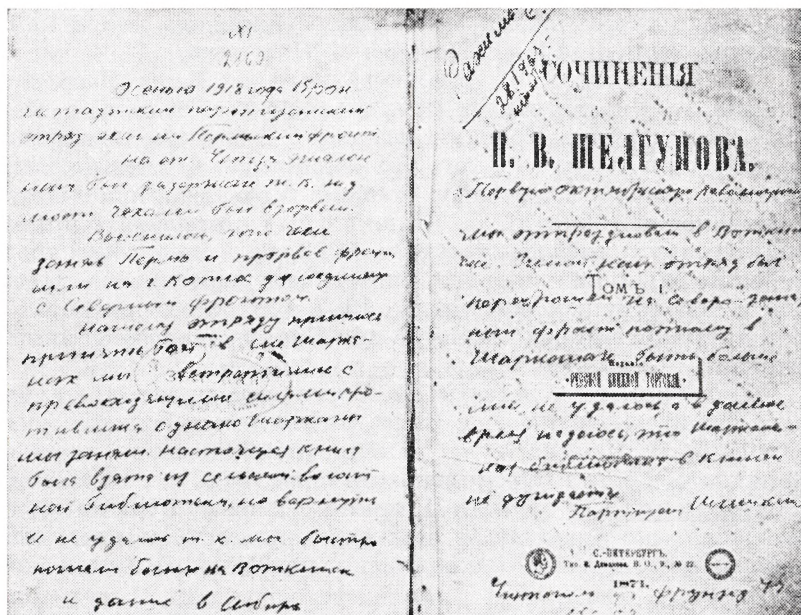 №1
2169
Осенью 1918 года Крон
штадтский партизанский
отряд ехал на Пермский фронт
на ст. Чепца эшелон
наш был задержан т. к. над
мост был взорван.
Выяснилось, что чехи
заняв Пермь и прорвав фронт
шли на г. Котлас до соединения
с Северным фронтом.
Нашему отряду пришлось
принять бой в селе Шарка-
нах мы встретились с
превосходящими силами про-
тивника однако Шарканы
мы заняли. Настоящая книга
была взята из сельской волост
ной библиотеки, но вернуть
и не удалось т. к. мы быстро
погнали белых на Воткинск
и далее в Сибирь
СОЧИНЕНІЯ
Н. В. ШЕЛГУНОВА.
Первую октябрьскую революцию
мы отпраздновали в Воткин
ске Зимой наш отряд был
ТОМЪ I.
переброшен на Северо-запад
ный фронт поэтому в
Шарканах быть больше
Изданіе
«РУССКОЙ КНИЖНОЙ ТОРГОВЛИ»
мне не удалось а в данное
время надеюсь, что Шаркан-
ская библиотека в книге
не нуждается
Партизан
С.-ПЕТЕРБУРГЪ.
Тип. В. Демакова, В. О., 9 л., № 22.
1871.
Читатель Фрунзе